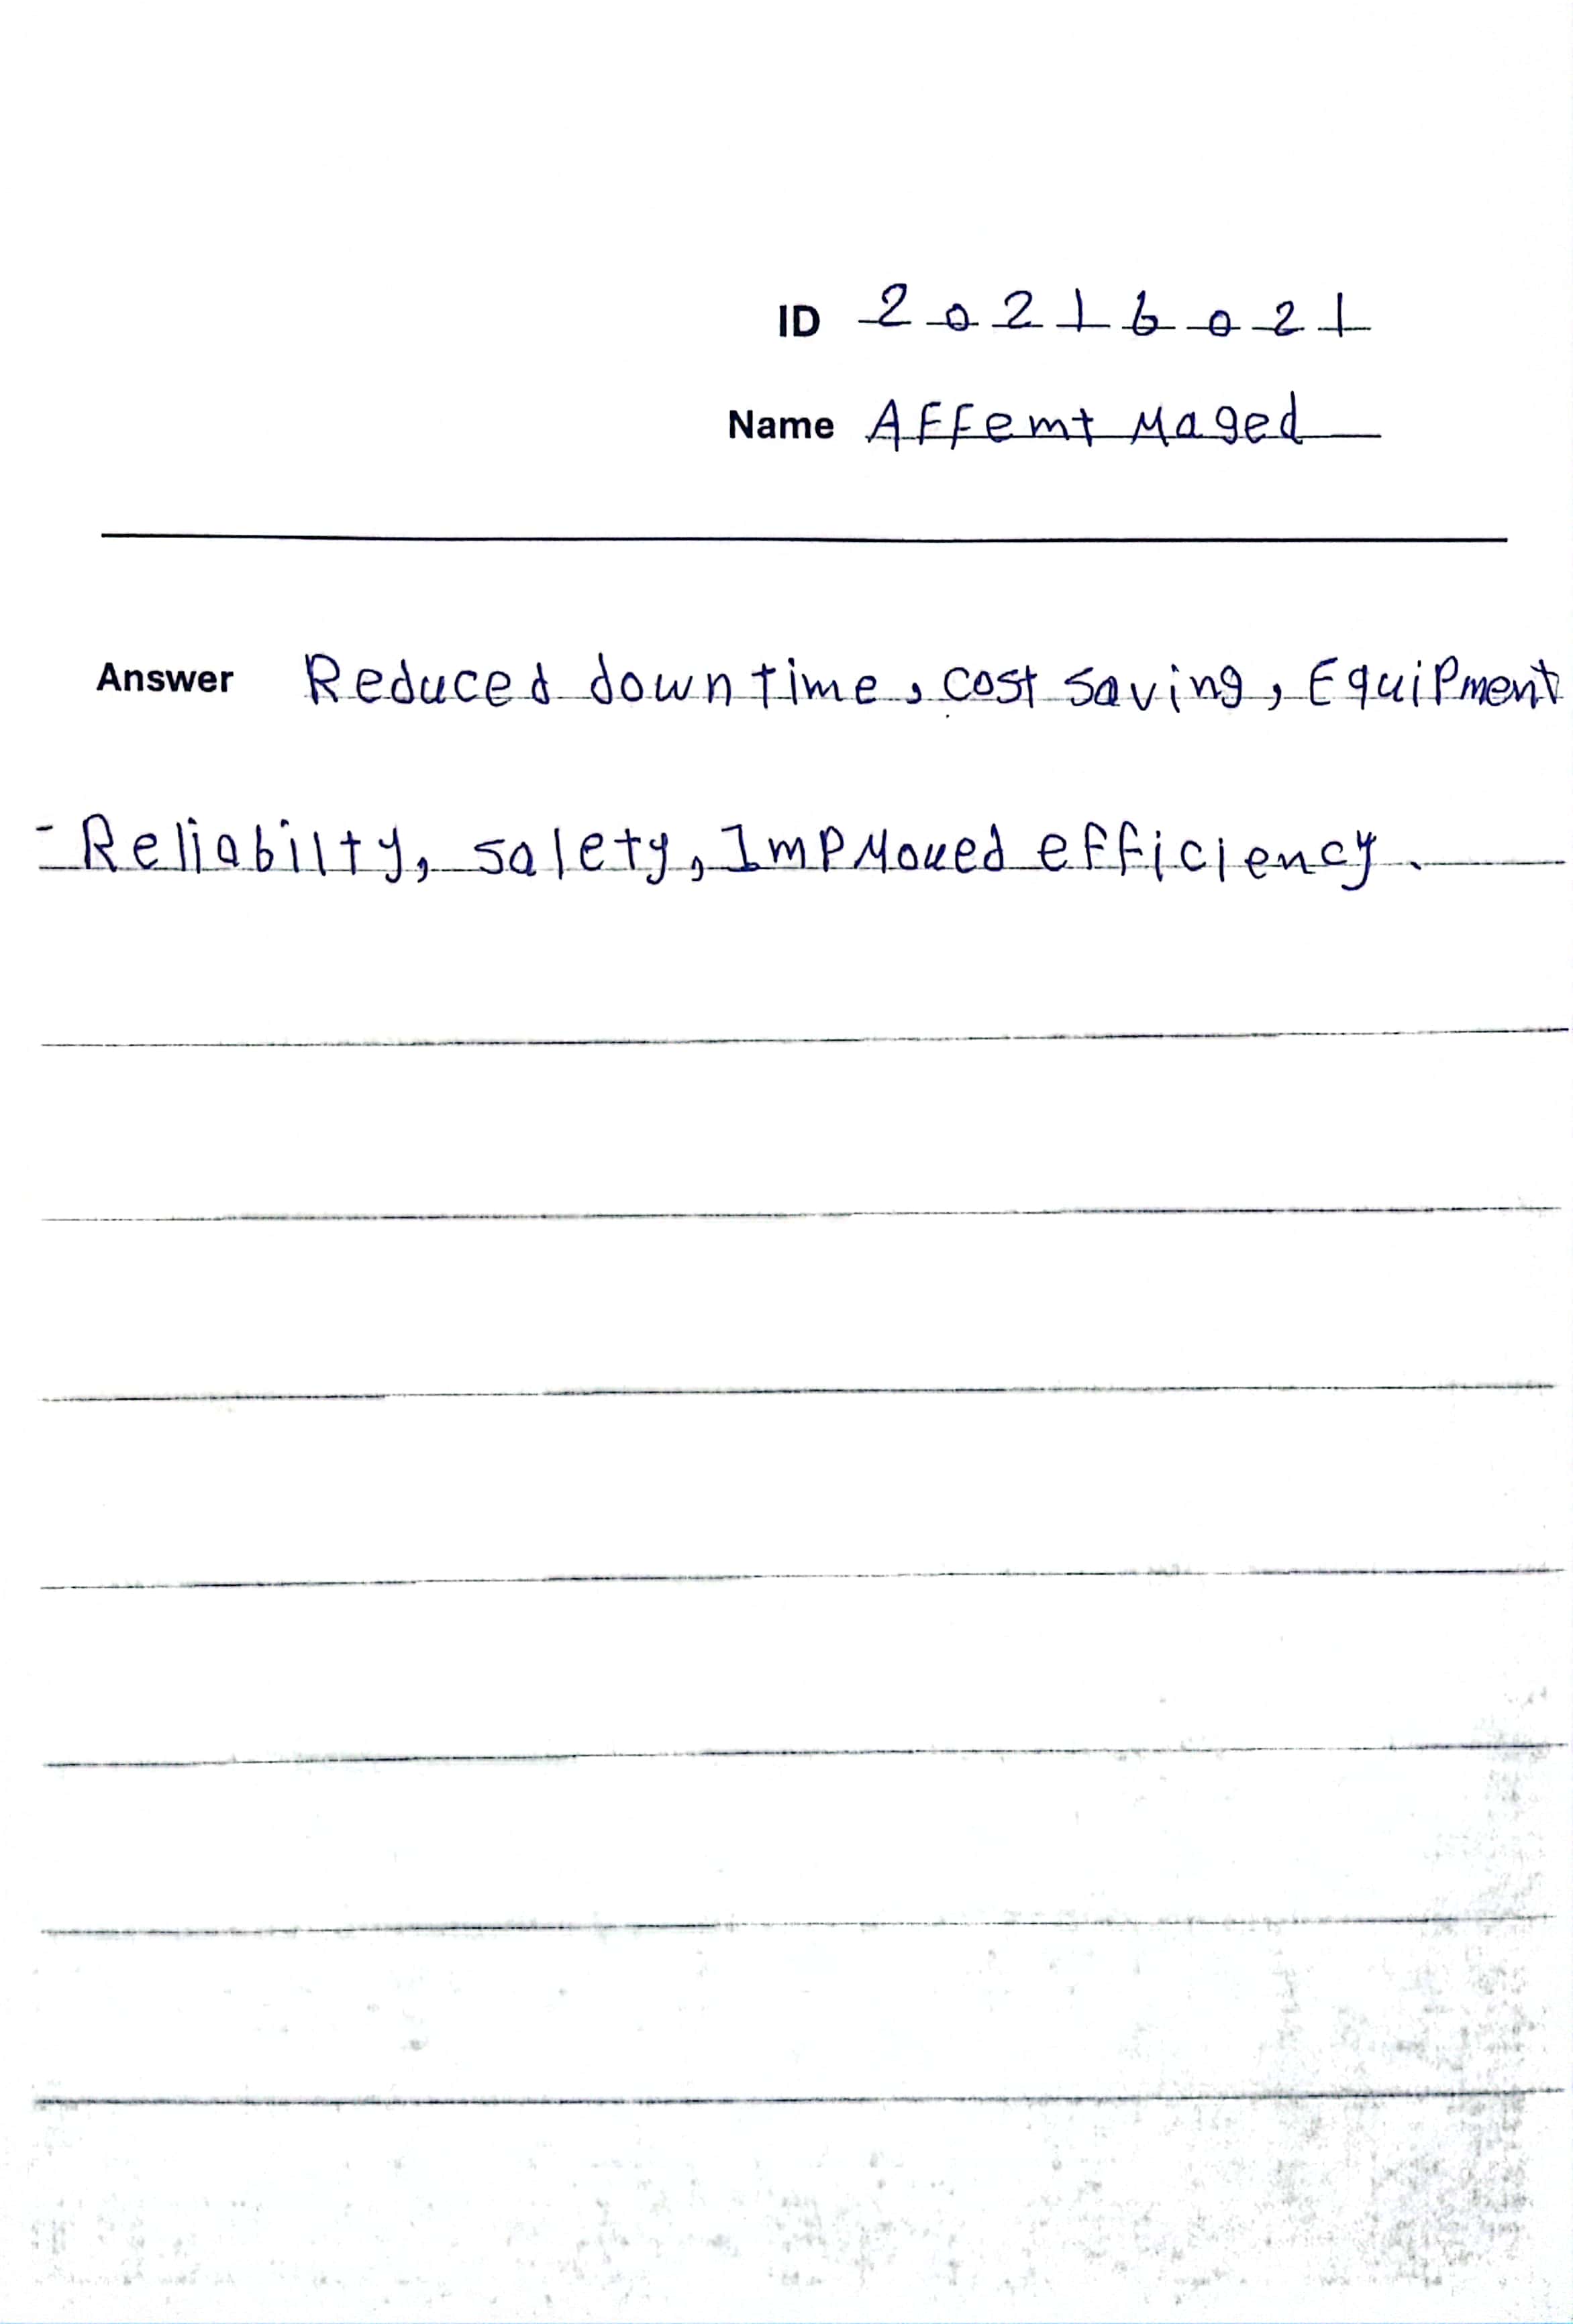 ID 20216021
Name AFFemt Maged
Answer Reduced down time, cost saving, Equipment
- Reliabilty, salety, Improved efficiency.